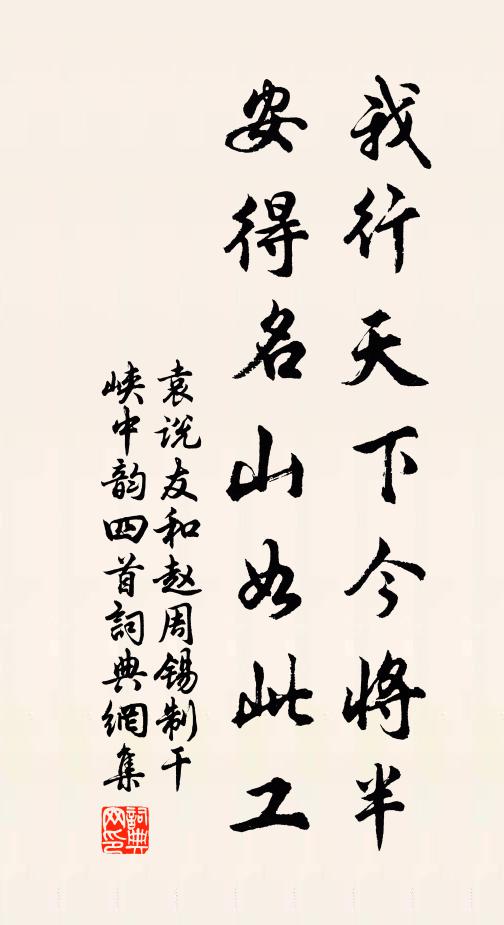 我行天下今将半
安得名山如此工
袁说友和赵周锡制干
峡中韵四首詞典網集
詞典
网印